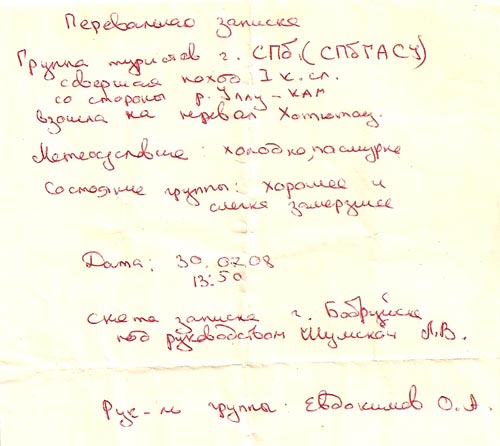 Перевальная записка
Группа туристов г. СПб. (СПбГАСУ)
совершая поход I к.сл.
со стороны р. Уллу-кам
взошла на перевал Хотютау.
Метеоусловие: холодно, пасмурно
Состояние группы: хорошее и
слегка замерзшее
Дата: 30.07.08
13:50
снята записка г. Бобруйска
под руководством Шумской Л.В.
Рук-ль группы: Евдокимов О.А.